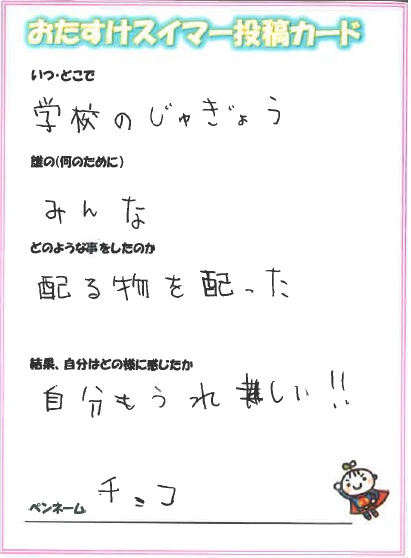 おたすけスイマー投稿カード
いつ・どこで
学校のじゅぎょう
誰の(何のために)
みんな
どのような事をしたのか
配る物を配った
結果、自分はどの様に感じたか
自分もうれしい!!
ペンネーム チョコ